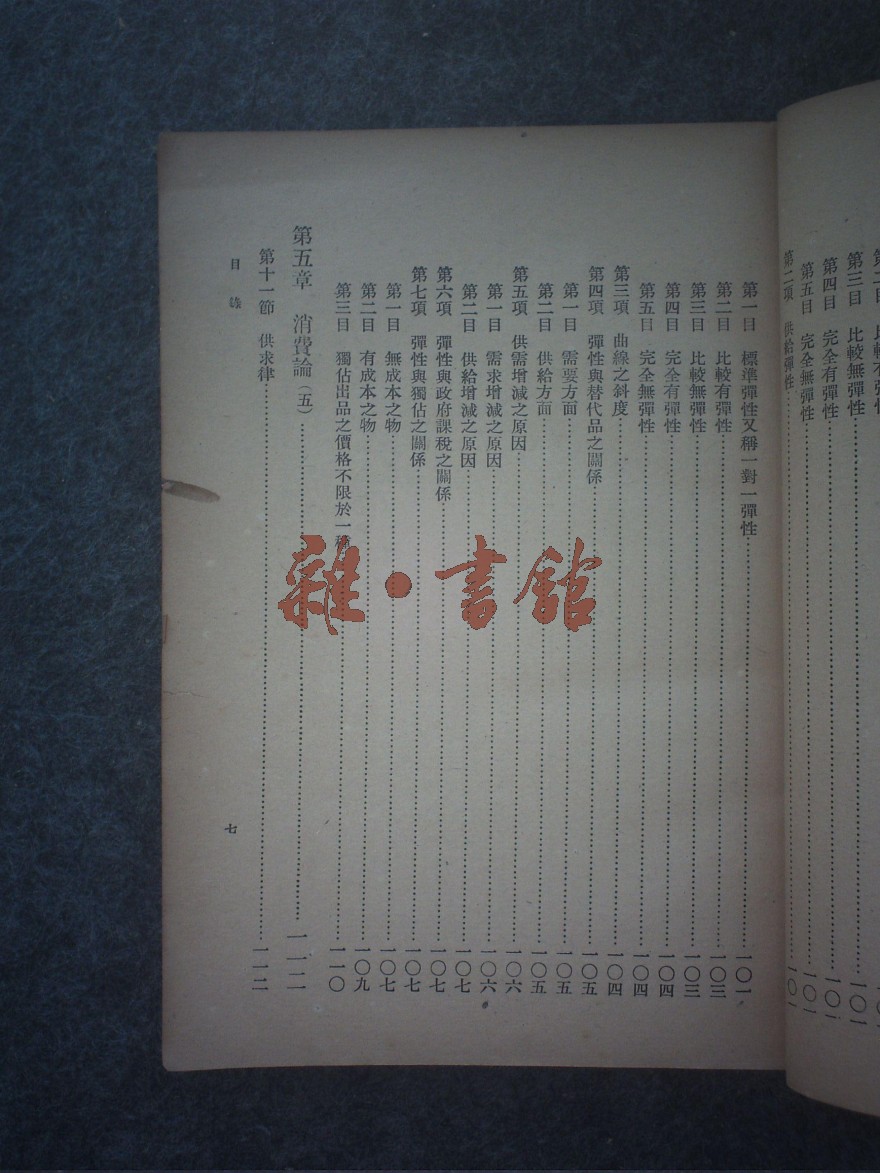 第三目 比較無彈性
第四目 完全有彈性
第五目 完全無彈性
第二項 供給彈性……一〇一
第一目 標準彈性又稱一對一彈性……一〇一
第二目 比較有彈性……一〇三
第三目 比較無彈性……一〇三
第四目 完全有彈性……一〇四
第五目 完全無彈性……一〇四
第三項 曲線之斜度……一〇四
第四項 彈性與替代品之關係……一〇五
第一目 需要方面……一〇五
第二目 供給方面……一〇五
第五項 供需增減之原因……一〇六
第一目 需求增減之原因……一〇六
第二目 供給增減之原因……一〇七
第六項 彈性與政府課稅之關係……一〇七
第七項 彈性與獨佔之關係……一〇七
第一目 無成本之物……一〇七
第二目 有成本之物……一〇九
第三目 獨佔出品之價格不限於一種……一一〇
第五章 消費論（五）……一一二
第十一節 供求律……一一二
目錄 七
雜·書館